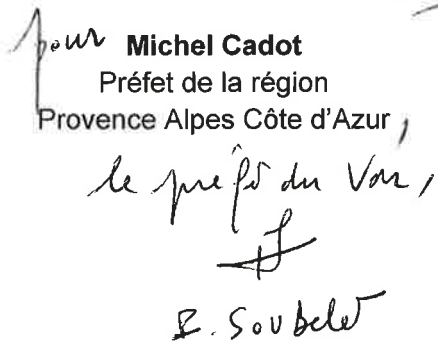 pour Michel Cadot
Préfet de la région
Provence Alpes Côte d'Azur,
le préfet du Var,
E. Soubelet